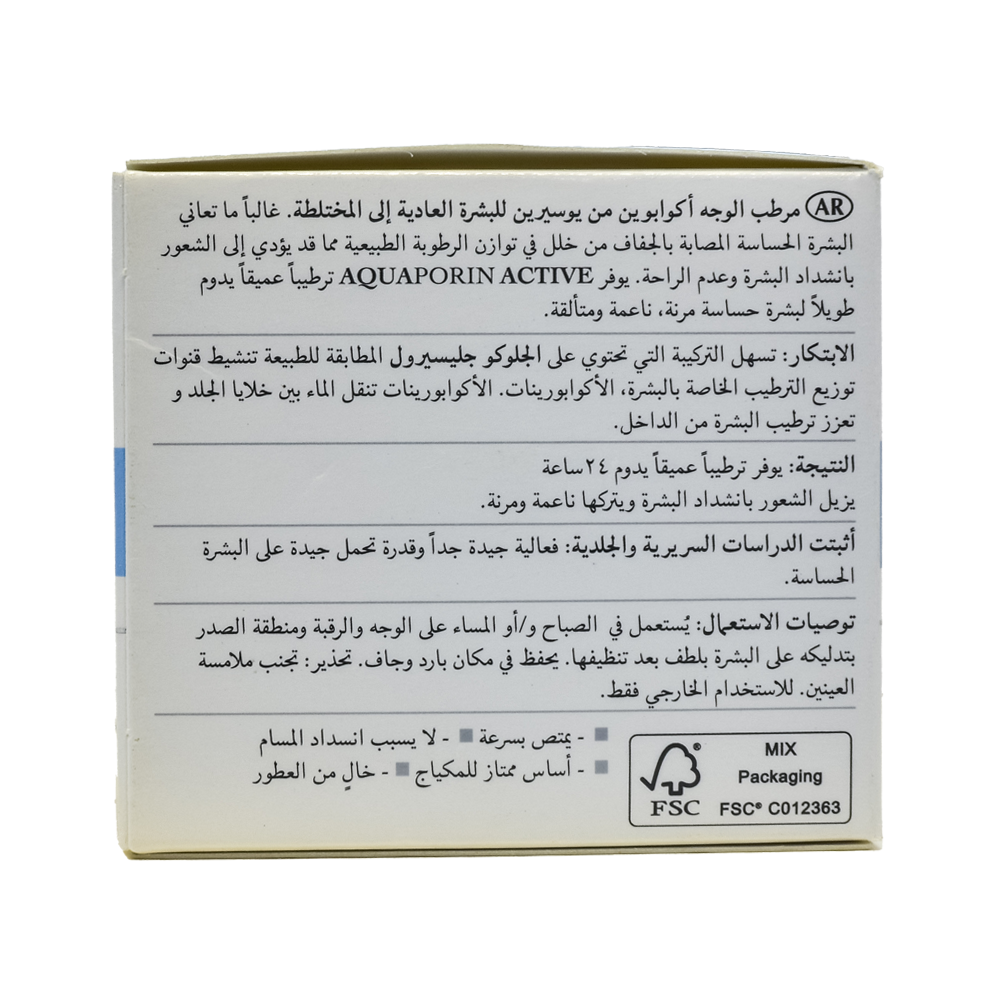 AR مرطب الوجه أكوابوين من يوسيرين للبشرة العادية إلى المختلطة. غالباً ما تعاني
البشرة الحساسة المصابة بالجفاف من خلل في توازن الرطوبة الطبيعية مما قد يؤدي إلى الشعور
بانشداد البشرة وعدم الراحة. يوفر AQUAPORIN ACTIVE ترطيباً عميقاً يدوم
طويلاً لبشرة حساسة مرنة، ناعمة ومتألقة.
الابتكار: تسهل التركيبة التي تحتوي على الجلوكو جليسيرول المطابقة للطبيعة تنشيط قنوات
توزيع الترطيب الخاصة بالبشرة، الأكوابورينات. الأكوابورينات تنقل الماء بين خلايا الجلد و
تعزز ترطيب البشرة من الداخل.
النتيجة: يوفر ترطيباً عميقاً يدوم ٢٤ساعة
يزيل الشعور بانشداد البشرة ويتركها ناعمة ومرنة.
أثبتت الدراسات السريرية والجلدية: فعالية جيدة جداً وقدرة تحمل جيدة على البشرة
الحساسة.
توصيات الاستعمال: يُستعمل في الصباح و/أو المساء على الوجه والرقبة ومنطقة الصدر
بتدليكه على البشرة بلطف بعد تنظيفها. يحفظ في مكان بارد وجاف. تحذير: تجنب ملامسة
العينين. للاستخدام الخارجي فقط.
- يمتص بسرعة - لا يسبب انسداد المسام
- أساس ممتاز للمكياج - خالٍ من العطور
MIX
Packaging
FSC® C012363
FSC ®